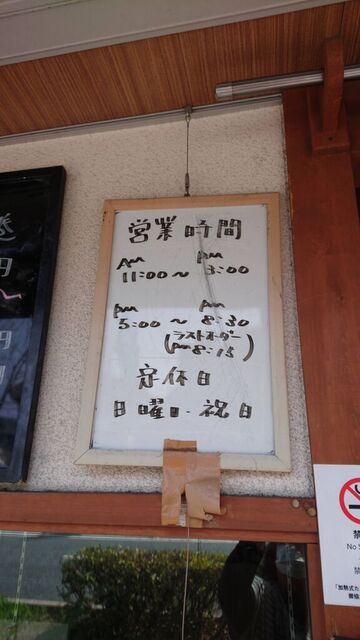 営業時間
AM PM
11:00～ 3:00
PM PM
5:00～ 8:30
(ラストオーダー
PM 8:15)
定休日
日曜日・祝日
円
円
禁
No S
禁
「加熱式た